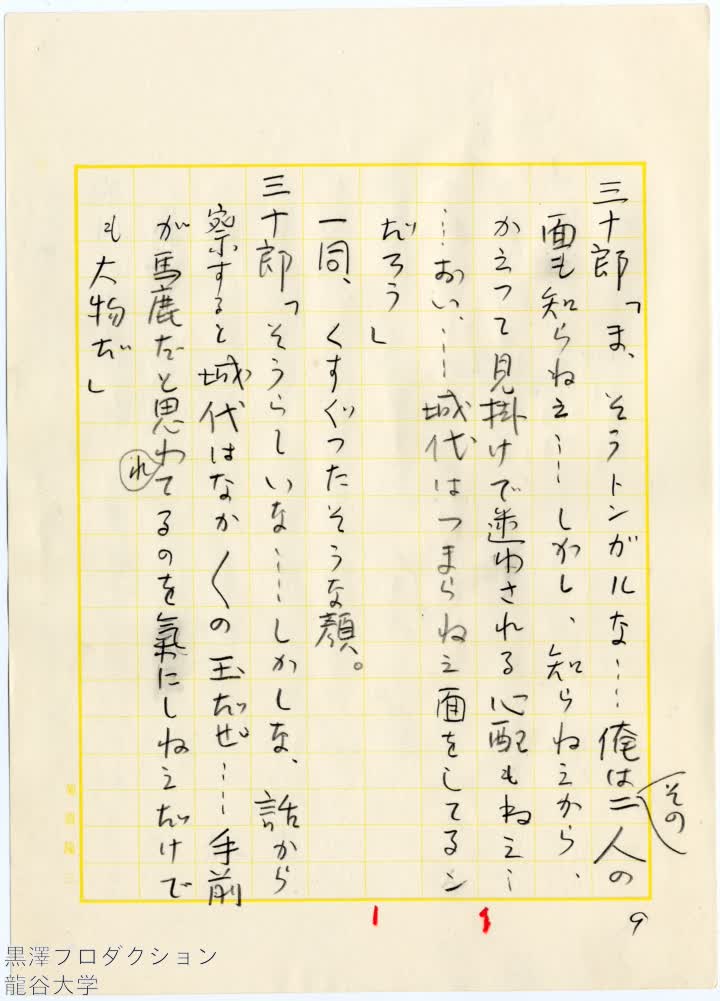 三十郎「ま、そうトンガルな……俺はその二人の
面も知らねえ……しかし、知らねえから、
かえって見掛けで迷わされる心配もねえ…
…おい、……城代はつまらねえ面をしてるン
だろう」
一同、くすぐったそうな顔。
三十郎「そうらしいな……しかしな、話から
察すると城代はなか〱の玉だぜ……手前
が馬鹿だと思われてるのを氣にしねえだけで
も大物だ」
9
菊島隆三
黒澤プロダクション
龍谷大学